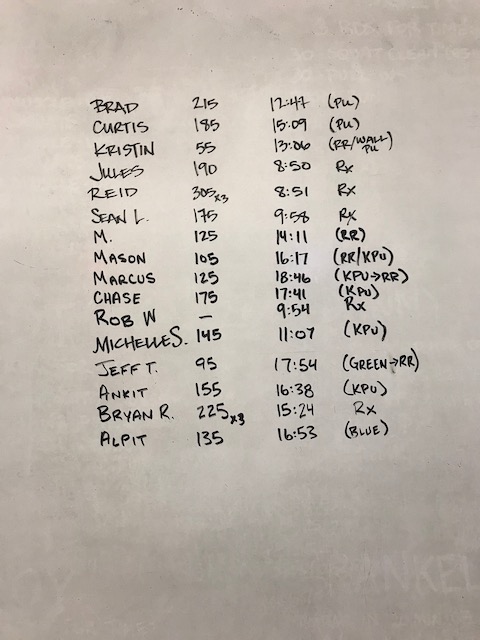 BRAD 215 12:47 (PU)
CURTIS 185 15:09 (PU)
KRISTIN 55 13:06 (RR/WALL PU)
JULES 190 8:50 Rx
REID 305x3 8:51 Rx
SEAN L. 175 9:58 Rx
M. 125 14:11 (RR)
MASON 105 16:17 (RR/KPU)
MARCUS 125 18:46 (KPU→RR)
CHASE 175 17:41 (KPU)
ROB W — 9:54 Rx
MICHELLE S. 145 11:07 (KPU)
JEFF T. 95 17:54 (GREEN→RR)
ANKIT 155 16:38 (KPU)
BRYAN R. 225x3 15:24 Rx
ALPIT 135 16:53 (BLUE)